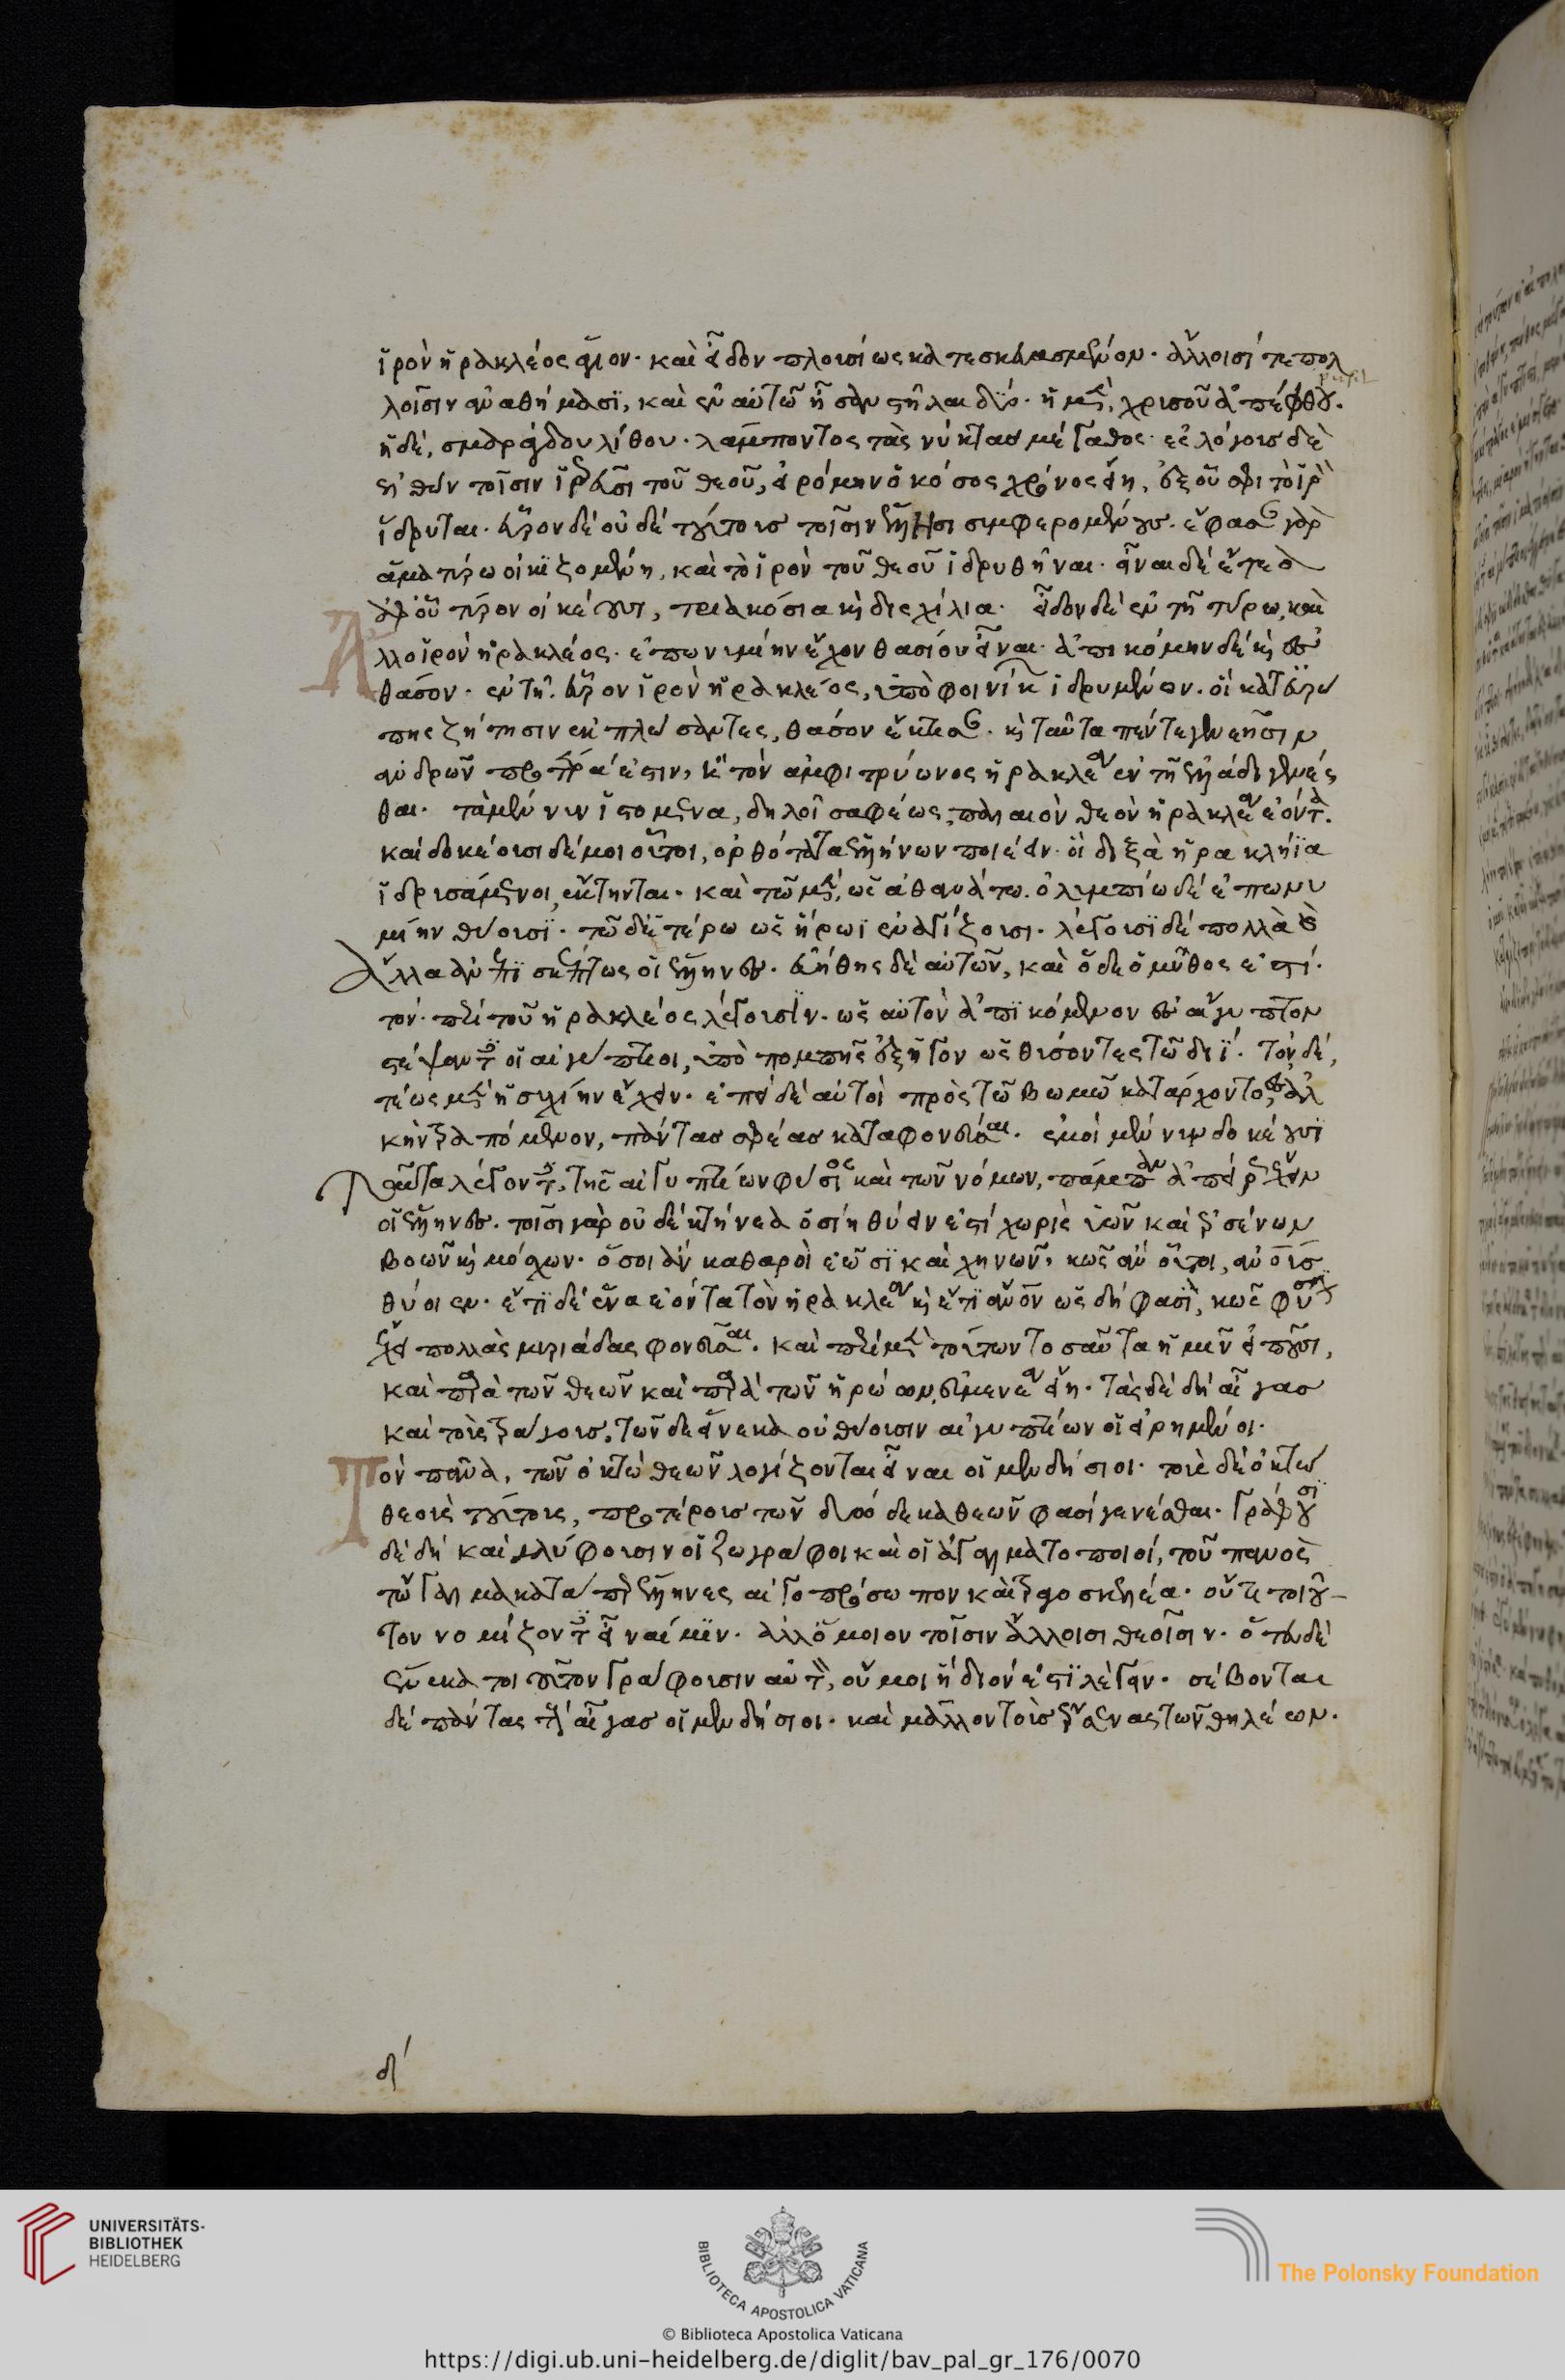 ἱρὸν ἡρακλέος ἅγιον· καὶ εἶδον πλουσίως κατεσκευασμένον· ἄλλοισί τε πολ
λοῖσιν ἀναθήμασι, καὶ ἐν αὐτῶ ἦσαν στῆλαι δύο· ἡ μὲν, χρυσοῦ ἀπέφθου·
ἡ δὲ, σμαράγδου λίθου· λάμποντος τὰς νύκτας μέγαθος· ἐς λόγους δὲ
ἐλθὼν τοῖσιν ἱρεῦσι τοῦ θεοῦ, εἰρόμην ὁκόσος χρόνος εἴη, ἐξ οὗ σφι τὸ ἱρὸν
ἵδρυται· εὗρον δὲ οὐδὲ τούτους τοῖσιν ἕλλησι συμφερομένους· ἔφασαν γὰρ
ἅμα τύρω οἰκιζομένη, καὶ τὸ ἱρὸν τοῦ θεοῦ ἱδρυθῆναι· εἶναι δὲ ἔτεα
ἀφ' οὗ τύρον οἰκέουσι, τριακόσια καὶ δισχίλια· εἶδον δὲ ἐν τῆ τύρω, καὶ
ἄλλο ἱρὸν ἡρακλέος· ἐπωνυμίην ἔχον θασίου εἶναι· ἀπικόμην δὲ καὶ ἐς
θάσον· ἐν τῆ εὗρον ἱρὸν ἡρακλέος, ὑπὸ φοινίκων ἱδρυμένον· οἳ κατ' εὐρώ
πης ζήτησιν ἐκπλώσαντες, θάσον ἔκτισαν· καὶ ταῦτα πέντε γενεῆσιν
ἀνδρῶν πρότερά ἐστιν, ἢ τὸν ἀμφιτρύωνος ἡρακλέα ἐν τῆ ἑλλάδι γενέσ
θαι· τὰ μέν νυν ἱστορημένα, δηλοῖ σαφέως, παλαιὸν θεὸν ἡρακλέα ἐόντα.
καὶ δοκέουσι δέ μοι οὗτοι, ὀρθότατα ἑλλήνων ποιέειν· οἳ διξὰ ἡρακλήϊα
ἱδρυσάμενοι ἔκτηνται· καὶ τῶ μὲν, ὡς ἀθανάτω. ὀλυμπίω δὲ ἐπωνυ
μίην θύουσι· τῶ δὲ ἑτέρω ὡς ἥρωϊ ἐναγίζουσι· λέγουσι δὲ πολλὰ καὶ
ἄλλα ἀνεπισκέπτως οἱ ἕλληνες· εὐήθης δὲ αὐτῶν, καὶ ὅδε ὁ μῦθός ἐστι·
τὸν περὶ τοῦ ἡρακλέος λέγουσιν· ὡς αὐτὸν ἀπικόμενον ἐς αἴγυπτον
στέψαντες οἱ αἰγύπτιοι, ὑπὸ πομπῆς ἐξῆγον ὡς θύσοντες τῶ διΐ· τὸν δὲ,
τέως μὲν ἡσυχίην ἔχειν· ἐπεὶ δὲ αὐτοῦ πρὸς τῶ βωμῶ κατάρχοντο, ἐς ἀλ
κὴν τραπόμενον, πάντας σφέας καταφονεῦσαι· ἐμοὶ μέν νυν δοκέουσι
ταῦτα λέγοντες, τῆς αἰγυπτίων φύσιος καὶ τῶν νόμων, πάμπαν ἀπείρως ἔχειν
οἱ ἕλληνες· τοῖσι γὰρ οὐδὲ κτήνεα ὁσίη θύειν ἐστὶ χωρὶς ὑῶν καὶ ἐρσένων
βοῶν καὶ μόσχων· ὅσοι ἂν καθαροὶ ἐῶσι καὶ χηνῶν· κῶς ἂν οὗτοι, ἀν̅ο̅υ̅ς̅
θύοιεν· ἔτι δὲ ἕνα ἐόντα τὸν ἡρακλέα καὶ ἔτι ἄν̅ο̅ν̅ ὡς δή φασὶ, κῶς φύσιν
ἔχει πολλὰς μυριάδας φονεῦσαι· καὶ περὶ μὲν τούτων τοσαῦτα ἡμῖν εἰποῦσι,
καὶ παρὰ τῶν θεῶν καὶ παρὰ τῶν ἡρώων, εὐμένεια εἴη· τὰς δὲ δὴ αἶγας
καὶ τοὺς τράγους, τῶν δε εἵνεκα οὐ θύουσιν αἰγυπτίων οἱ εἰρημένοι·
τὸν πᾶνα, τῶν ὀκτὼ θεῶν λογίζονται εἶναι οἱ μενδήσιοι· τοὺς δὲ ὀκτὼ
θεοὺς τούτους, προτέρους τῶν δυώδεκα θεῶν φασὶ γενέσθαι· γράφουσι
δὲ δὴ καὶ γλύφουσιν οἱ ζωγράφοι καὶ οἱ ἀγαλματοποιοί, τοῦ πανὸς
τὤγαλμα κατάπερ ἕλληνες αἰγοπρόσωπον καὶ τραγοσκελέα· οὔτι τοιοῦ-
τον νομίζοντες εἶναί μιν· ἀλλ' ὅμοιον τοῖσιν ἄλλοισι θεοῖσιν· ὅτευ δὲ
εἵνεκα τοιοῦτον γράφουσιν αὐτὸν, οὔ μοι ἥδιόν ἐστι λέγειν· σέβονται
δὲ πάντας τοὺς αἶγας οἱ μενδήσιοι· καὶ μᾶλλον τοὺς ἔρσενας τῶν θηλέων·
δ'
UNIVERSITÄTS-
BIBLIOTHEK
HEIDELBERG
BIBLIOTECA APOSTOLICA VATICANA
© Biblioteca Apostolica Vaticana
The Polonsky Foundation
https://digi.ub.uni-heidelberg.de/diglit/bav_pal_gr_176/0070